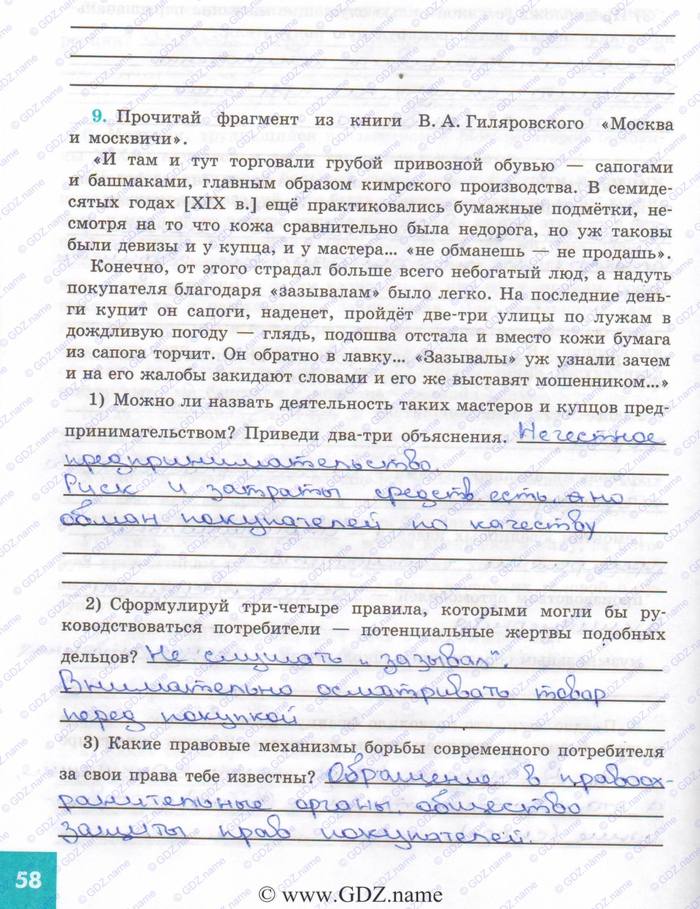 9. Прочитай фрагмент из книги В. А. Гиляровского «Москва
и москвичи».
«И там и тут торговали грубой привозной обувью — сапогами
и башмаками, главным образом кимрского производства. В семиде-
сятых годах [XIX в.] ещё практиковались бумажные подмётки, не-
смотря на то что кожа сравнительно была недорога, но уж таковы
были девизы и у купца, и у мастера... «не обманешь — не продашь».
Конечно, от этого страдал больше всего небогатый люд, а надуть
покупателя благодаря «зазывалам» было легко. На последние день-
ги купит он сапоги, наденет, пройдёт две-три улицы по лужам в
дождливую погоду — глядь, подошва отстала и вместо кожи бумага
из сапога торчит. Он обратно в лавку... «Зазывалы» уж узнали зачем
и на его жалобы закидают словами и его же выставят мошенником...»
1) Можно ли назвать деятельность таких мастеров и купцов пред-
принимательством? Приведи два-три объяснения. Нечестное
предпринимательство.
Риск и затраты средств есть, но
обман покупателей по качеству
2) Сформулируй три-четыре правила, которыми могли бы ру-
ководствоваться потребители — потенциальные жертвы подобных
дельцов? Не слушать „зазывал".
Внимательно осматривать товар
перед покупкой
3) Какие правовые механизмы борьбы современного потребителя
за свои права тебе известны? Обращение в правоох-
ранительные органы, общество
защиты прав покупателей.
58
© www.GDZ.name